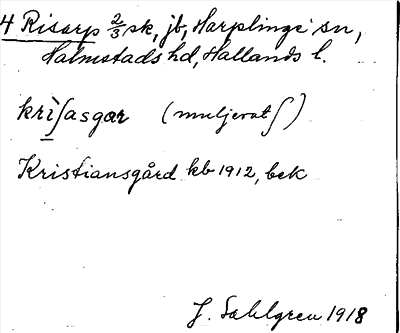 4 Risarp 2/3 sk, jb, Harplinge sn,
Halmstads hd, Hallands l.
krìʃasgær (muljerat ʃ)
Kristiansgård kb 1912, bek
J. Sahlgren 1918